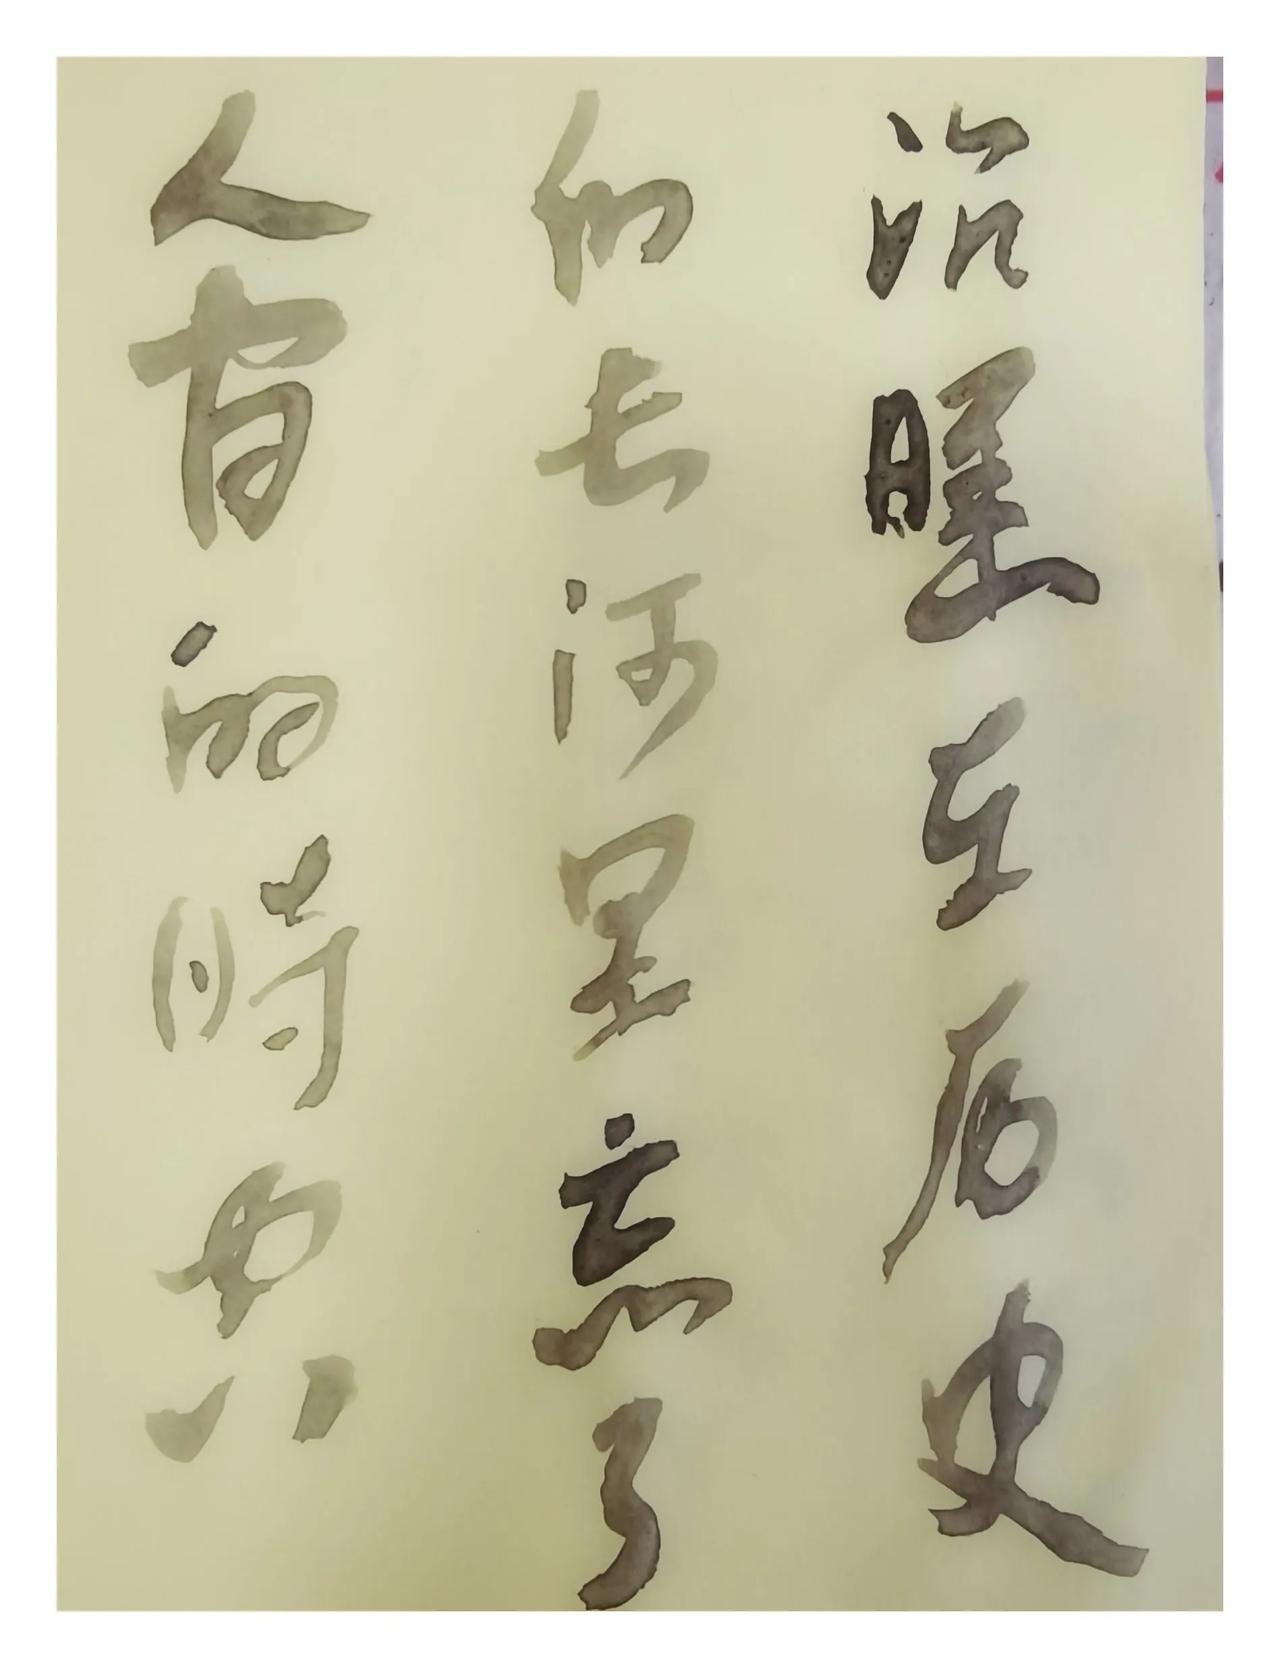 沉睡在历史
的长河里忘了
人的時